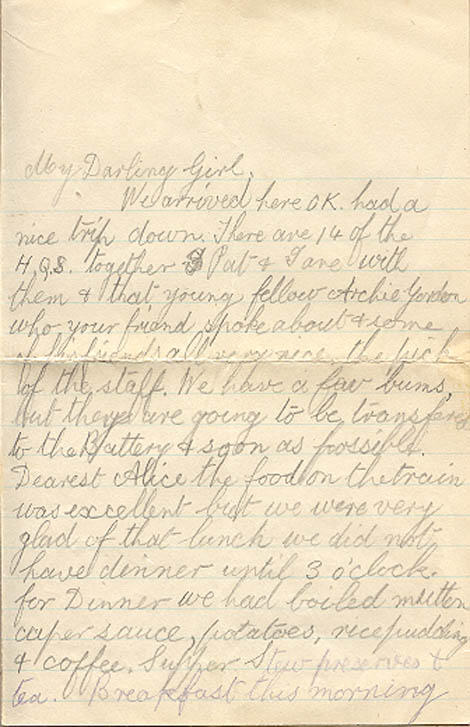 My Darling Girl,
We arrived here OK. had a
nice trip down. There are 14 of the
H.Q.S. together Pat & Tane with
them & that young fellow Archie Gordon
who your friend spoke about & some
of his friends all very nice, the pick
of the staff. We have a few bums,
but they are going to be transfered
to the Battery & soon as possible.
Dearest Alice the food on the train
was excellent but we were very
glad of that lunch we did not
have dinner until 3 o'clock.
for Dinner we had boiled mutton
caper sauce, potatoes, rice pudding
& coffee. Supper Stew preserves &
tea. Breakfast this morning